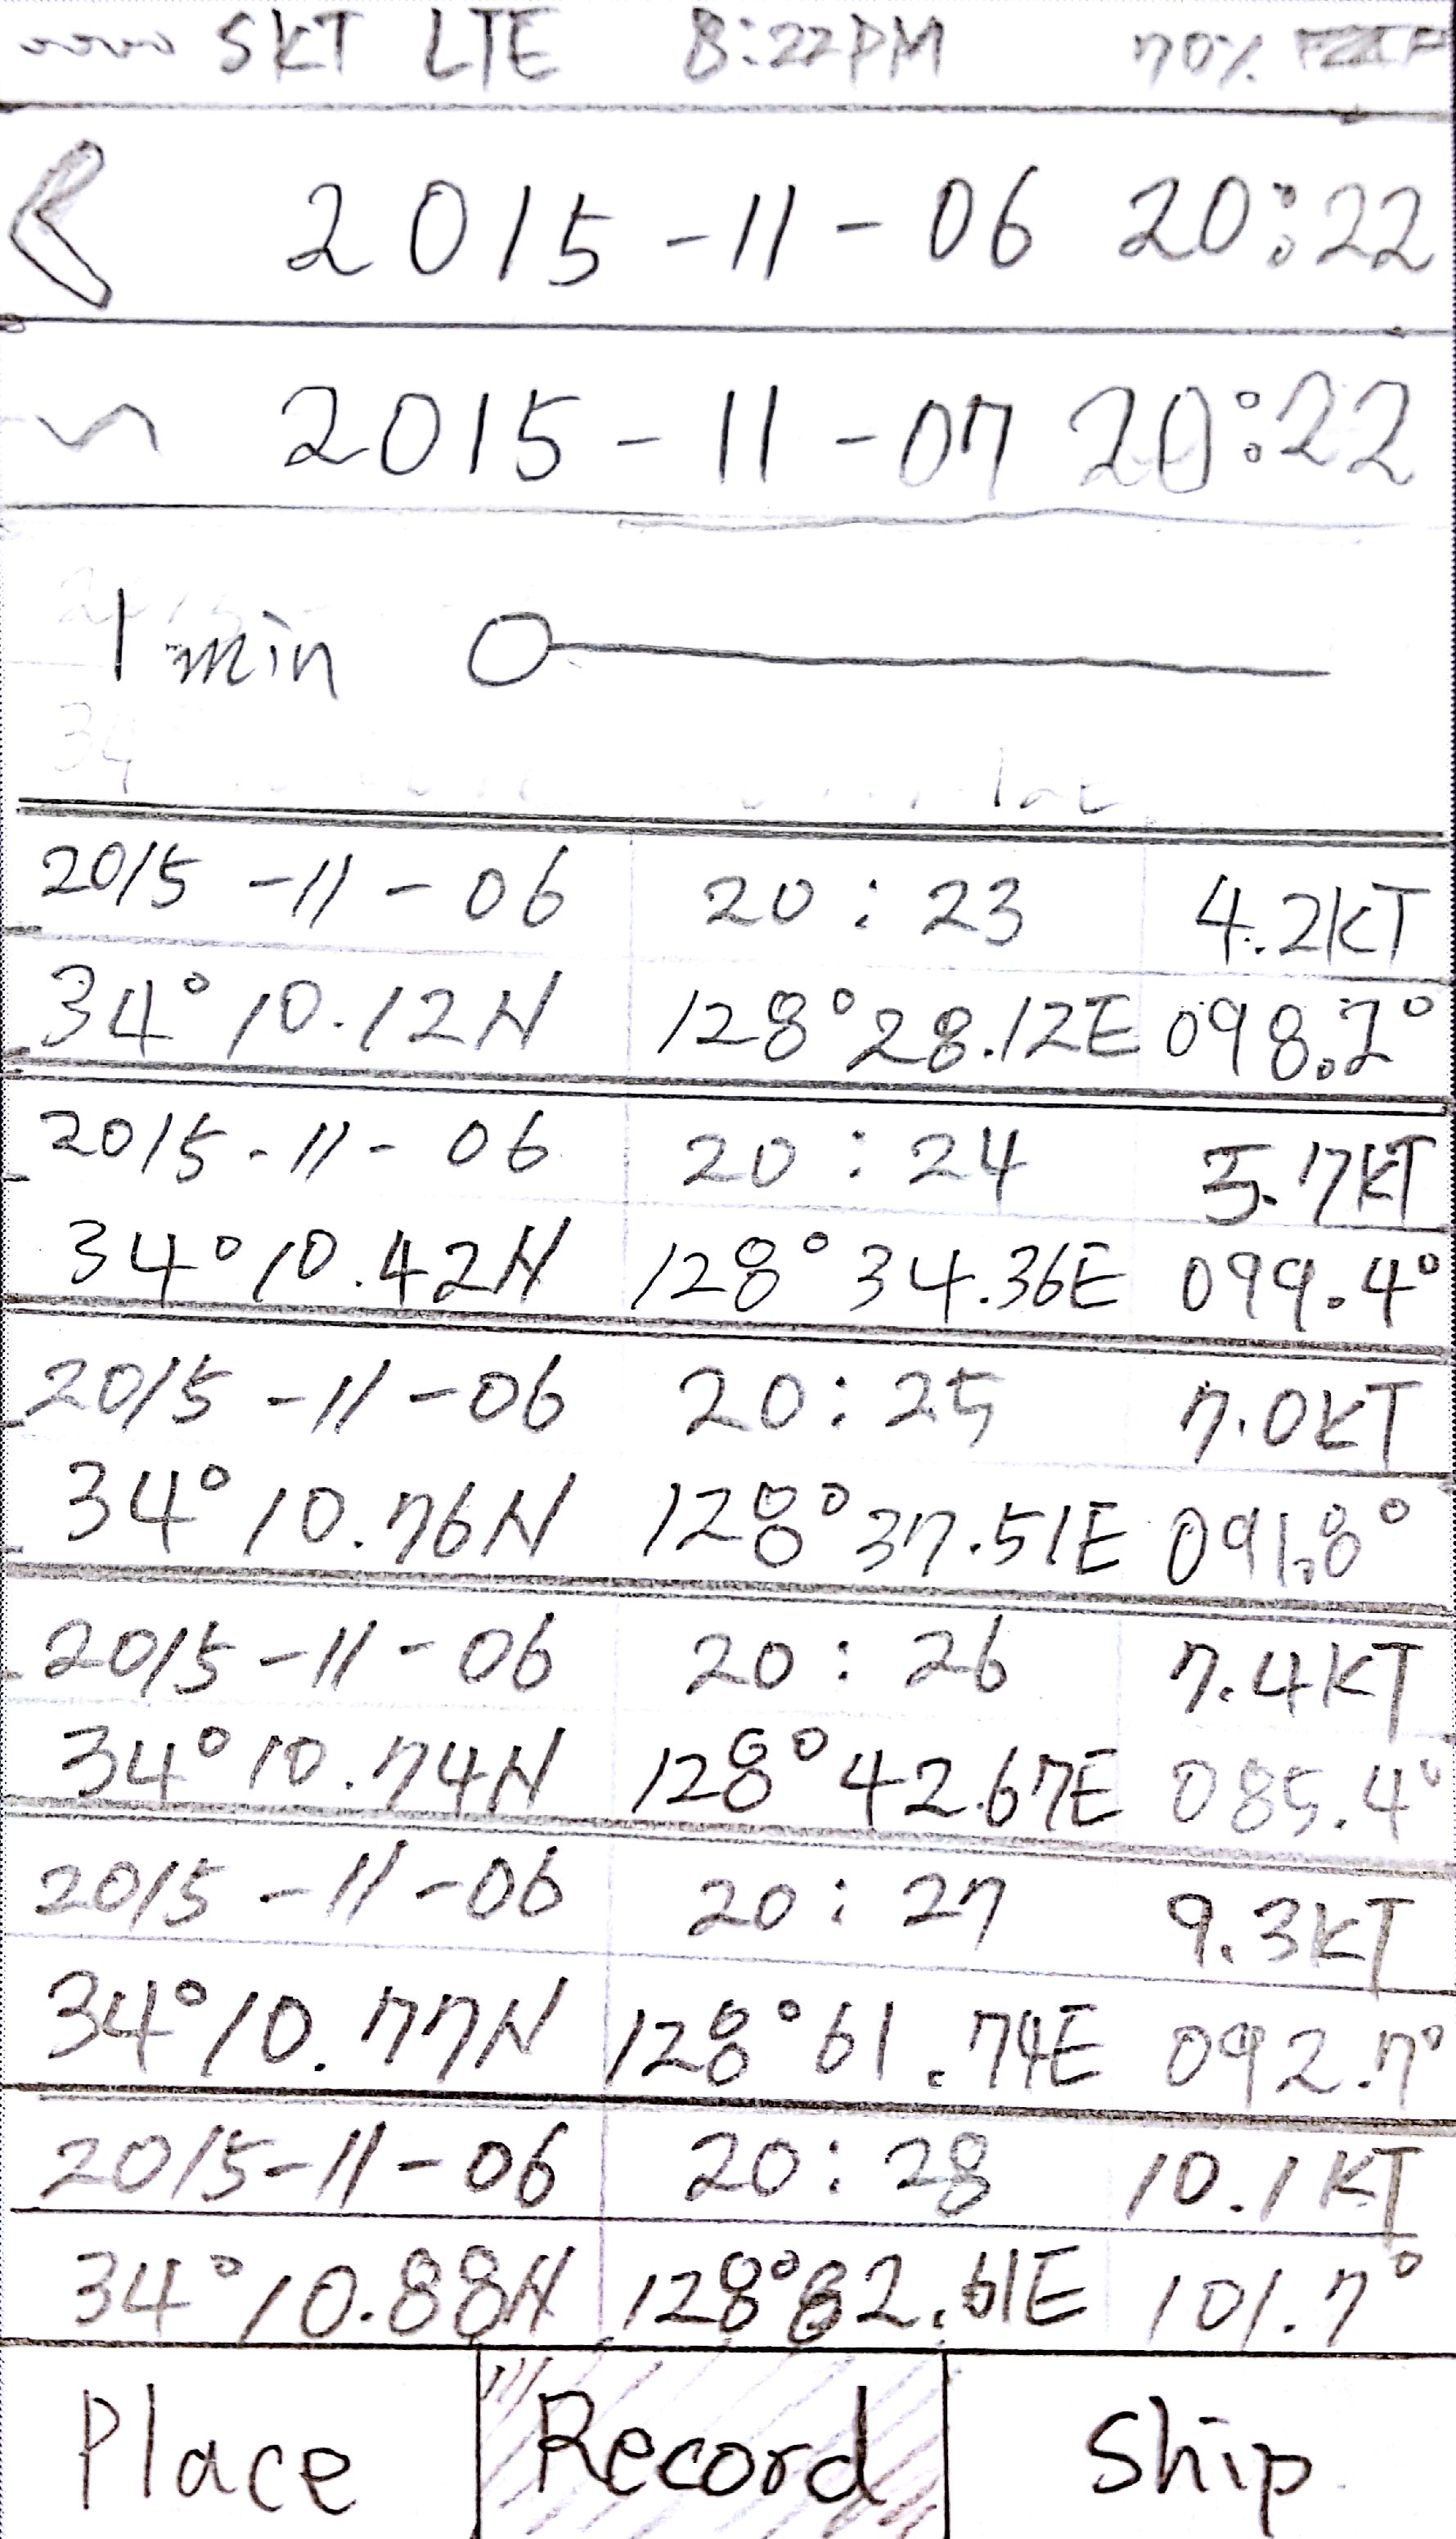 SKT LTE 8:22PM 70%
2015-11-06 20:22
~ 2015-11-07 20:22
1 min
2015-11-06 20:23 4.2KT
34°10.12N 128°28.12E 098.2°
2015-11-06 20:24 5.7KT
34°10.42N 128°34.36E 099.4°
2015-11-06 20:25 7.0KT
34°10.76N 128°37.51E 091.8°
2015-11-06 20:26 7.4KT
34°10.74N 128°42.67E 085.4°
2015-11-06 20:27 9.3KT
34°10.77N 128°61.74E 092.7°
2015-11-06 20:28 10.1KT
34°10.88N 128°82.61E 101.7°
Place Record Ship